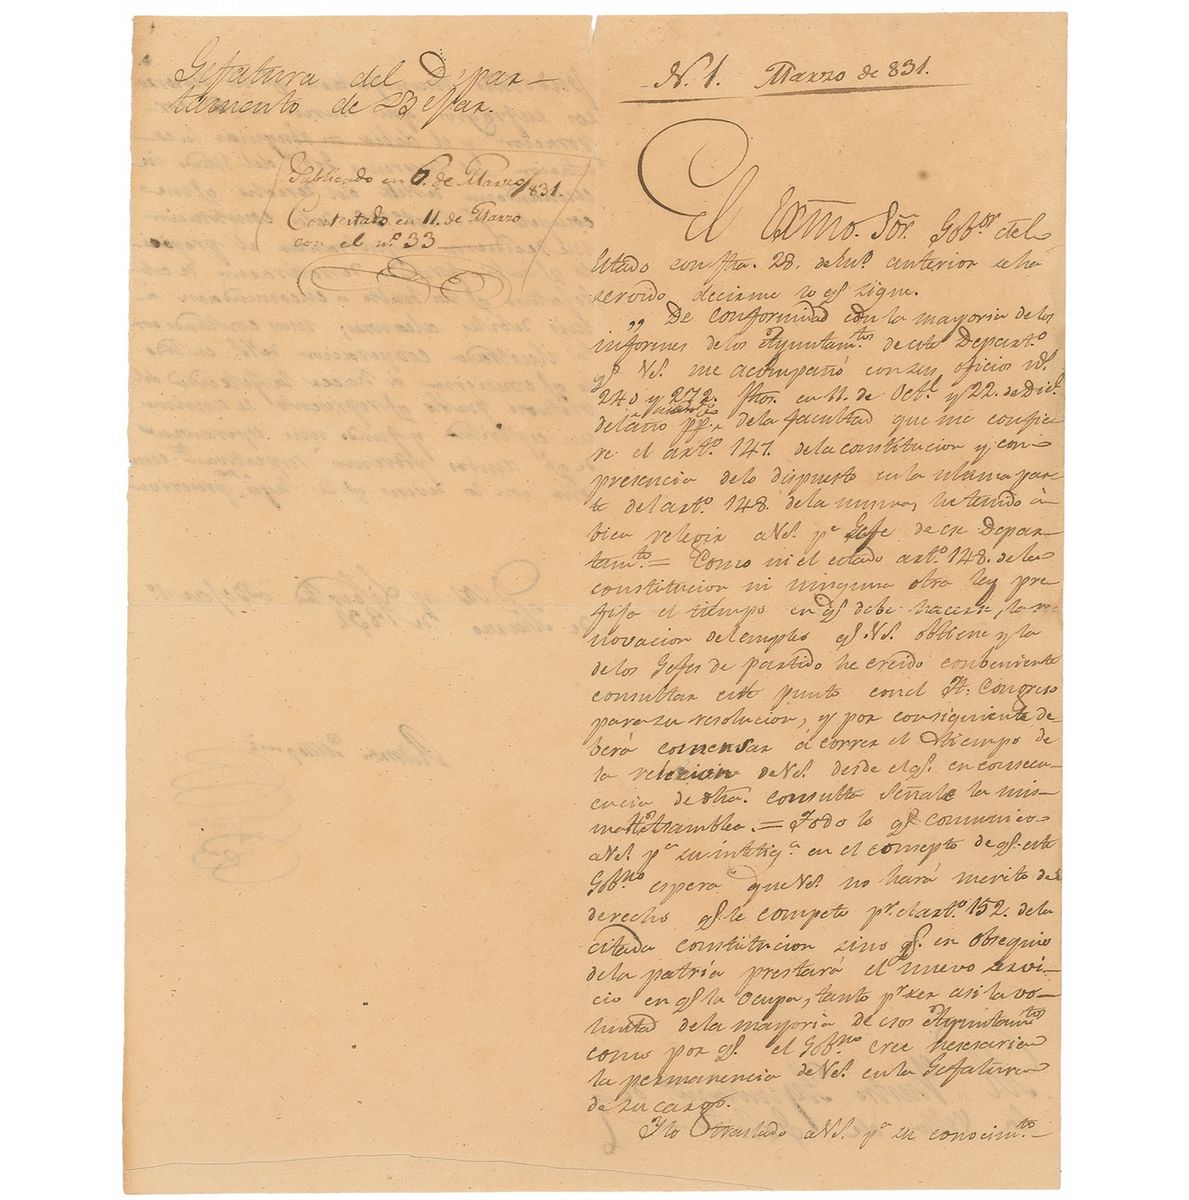 Gefatura del Depar-
tamento de Bejar.
Publicado en 6. de Marzo/831.
Contestado en 11. de Marzo
con el nº. 33
N. 1. Marzo de 831.
El Exmo. Sor. Gobor. del
Estado con fha. 28. de anterior se ha
servido decirme lo qe. sigue.
„ De conformidad con la mayoria de los
informes de los Ayuntamtos de este Departo.
qe. VS. me acompañó con sus oficios ns.
240 y 272. fhos. en 11. de Octe. y 22. de Dice.
del año ppo. de la facultad que me confie
re el arto. 147. de la constitucion y con
presencia de lo dispuesto en la ultima par
te del arto. 148. de la misma, he tenido á
bien relegir a VS. pa. Gefe de ese Depar-
tamto. = Como ni el citado arto. 148. de la
constitucion ni ninguna otra ley pre
fija el tiempo en qe. debe hacerse, la re
novacion del empleo qe. VS. obtiene y la
de los Gefes de partido he creido conbeniente
consultar este punto con el H. Congreso
para su resolucion, y por consiguiente de
berá comensar á correr el tiempo de
la relecion de VS. desde el qe. en consecu-
encia de dha. consulta señale la mis-
ma He. Asamblea. = Todo lo qe. comunico
a VS. pa. su inteliga. en el consepto de qe. este
Gobno. espera que VS. no hará merito del
derecho qe. le compete pr. el arto. 152. de la
citada constitucion sino qe. en obsequio
de la patria prestará el nuevo servi-
cio en qe. la ocupa, tanto pr. ser asi la vo-
luntad de la mayoria de esos Ayuntamtos
como por qe. el Gobno. cree nesesaria
la permanencia de VS. en la Gefatura
de su cargo.
Y lo traslado a VS. pa. su conocimto.